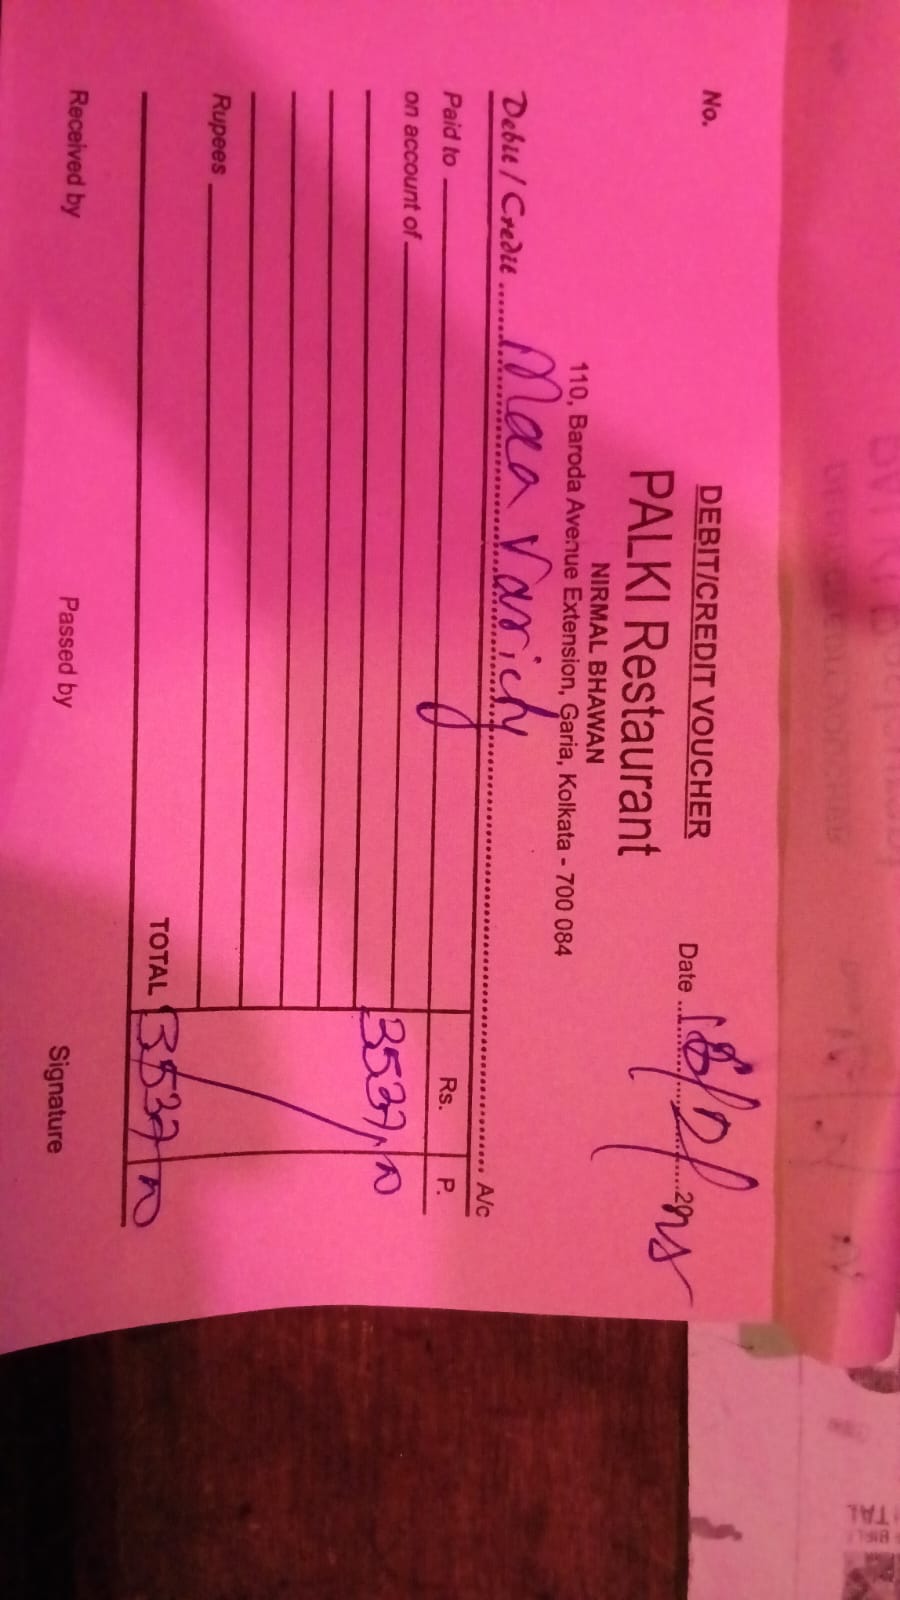 DEBIT/CREDIT VOUCHER
No.
Date
PALKI Restaurant
NIRMAL BHAWAN
110, Baroda Avenue Extension, Garia, Kolkata - 700 084
Debit / Credit Maa A/c
Paid to Rs. P.
on account of 3537
Rupees
TOTAL 3537
Received by Passed by Signature